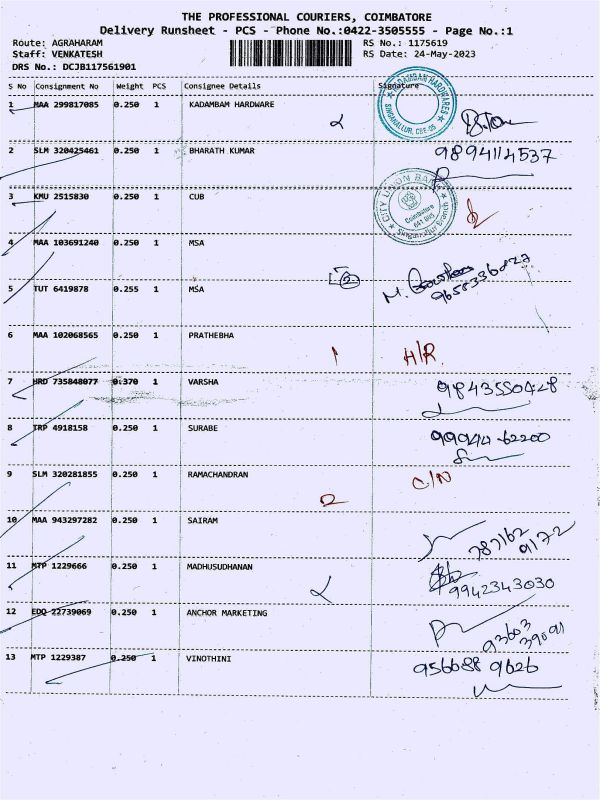 THE PROFESSIONAL COURIERS, COIMBATORE
Delivery Runsheet - PCS - Phone No.:0422-3505555 - Page No.:1
Route: AGRAHARAM RS No.: 1175619
Staff: VENKATESH RS Date: 24-May-2023
DRS No.: DCJB117561901
S No Consignment No Weight PCS Consignee Details Signature
1 MAA 299817085 0.250 1 KADAMBAM HARDWARE
KADAMBAM HARDWARES
SINGANALLUR, CBE-05
2 SLM 320425461 0.250 1 BHARATH KUMAR 9894114537
3 KMU 2515830 0.250 1 CUB
CITY UNION BANK
Coimbatore
641 005
Singanallur Branch
4 MAA 103691240 0.250 1 MSA
5 TUT 6419878 0.255 1 MSA 2 M.
6 MAA 102068565 0.250 1 PRATHEBHA 1 H/R
7 HRD 735848077 0.370 1 VARSHA 9843550428
8 TRP 4918158 0.250 1 SURABE 99944-62200
9 SLM 320281855 0.250 1 RAMACHANDRAN 2 C/N
10 MAA 943297282 0.250 1 SAIRAM 787162
9172
11 MTP 1229666 0.250 1 MADHUSUDHANAN 9942343030
12 EDQ 22739069 0.250 1 ANCHOR MARKETING 93603
39091
13 MTP 1229387 0.250 1 VINOTHINI 956688 9626